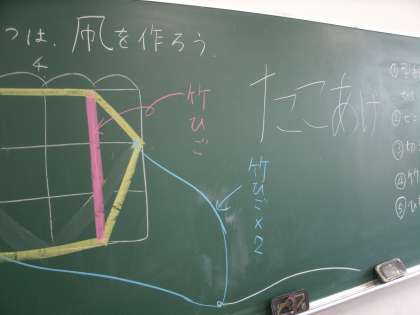 つは、凧を作ろう。
4
竹ひご
たこあげ
竹ひご×2
①
②
③切
④竹
⑤ひ